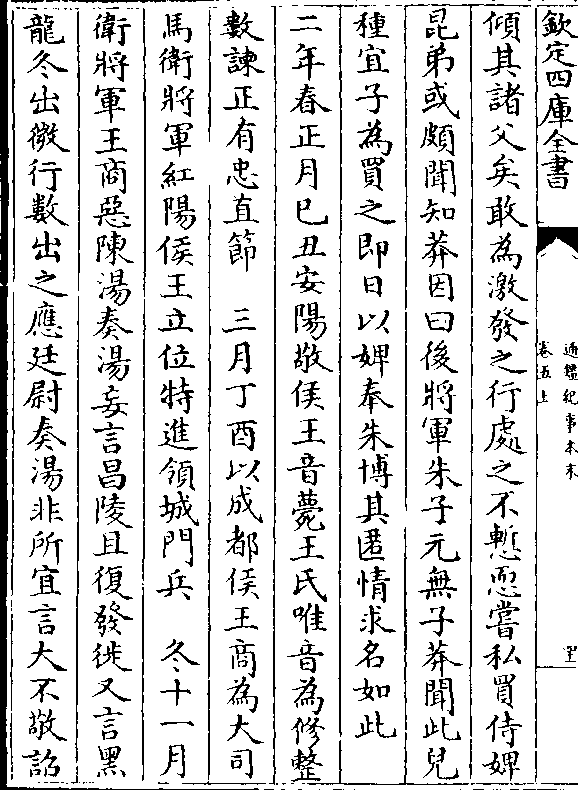 欽定四庫全書
通鑑紀事本末
卷五上
傾其諸父矣敢為激發之行處之不慙恧嘗私買侍婢
昆弟或頗聞知莽因曰後將軍朱子元無子莽聞此兒
種宜子為買之即日以婢奉朱博其匿情求名如此
二年春正月巳丑安陽敬侯王音薨王氏唯音為修整
數諫正有忠直節　三月丁酉以成都侯王商為大司
馬衛將軍紅陽侯王立位特進領城門兵　冬十一月
衛將軍王商惡陳湯奏湯妄言昌陵且復發徙又言黑
龍冬出微行數出之應廷尉奏湯非所宜言大不敬詔